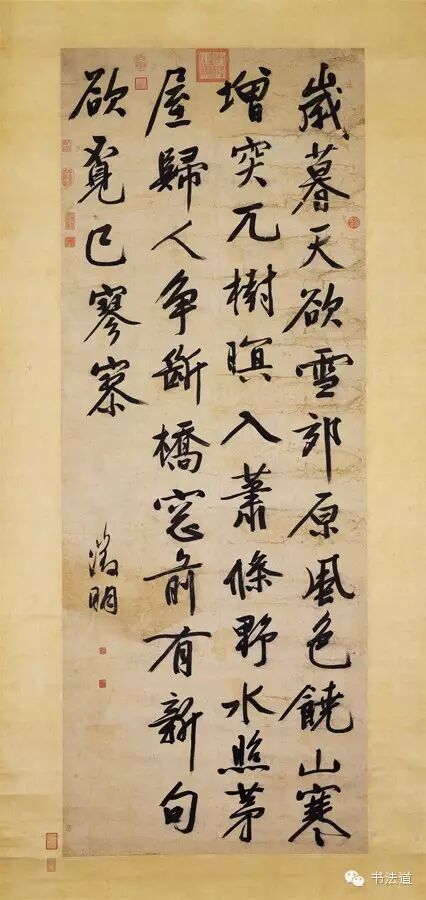 歲暮天欲雪郊原風色饒山寒
增突兀樹暝入蕭條野水照茅
屋歸人争斷橋窓前有新句
欲覓已寥寥
徵明
书法道